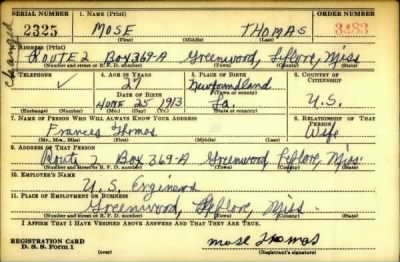 SERIAL NUMBER 1. NAME (Print) ORDER NUMBER
2325 MOSE THOMAS 3283
(First) (Middle) (Last)
changed
2. ADDRESS (Print)
ROUTE 2 BOX 369-A Greenwood, Leflore, Miss
(Number and street or R. F. D. number) (Town) (County) (State)
3. TELEPHONE 4. AGE IN YEARS 5. PLACE OF BIRTH 6. COUNTRY OF CITIZENSHIP
27 Newfoundland
DATE OF BIRTH (Town or county)
June 25 1913 La. U.S.
(Exchange) (Number) (Mo.) (Day) (Yr.) (State or country)
7. NAME OF PERSON WHO WILL ALWAYS KNOW YOUR ADDRESS 8. RELATIONSHIP OF THAT PERSON
Frances Thomas Wife
(Mr., Mrs., Miss) (First) (Middle) (Last)
9. ADDRESS OF THAT PERSON
Route 2 Box 369-A Greenwood Leflore Miss.
(Number and street or R. F. D. number) (Town) (County) (State)
10. EMPLOYER'S NAME
U.S. Engineers
11. PLACE OF EMPLOYMENT OR BUSINESS
Greenwood, Leflore, Miss.
(Number and street or R. F. D. number) (Town) (County) (State)
I AFFIRM THAT I HAVE VERIFIED ABOVE ANSWERS AND THAT THEY ARE TRUE.
REGISTRATION CARD
D. S. S. Form 1 Mose Thomas
(Registrant's signature)